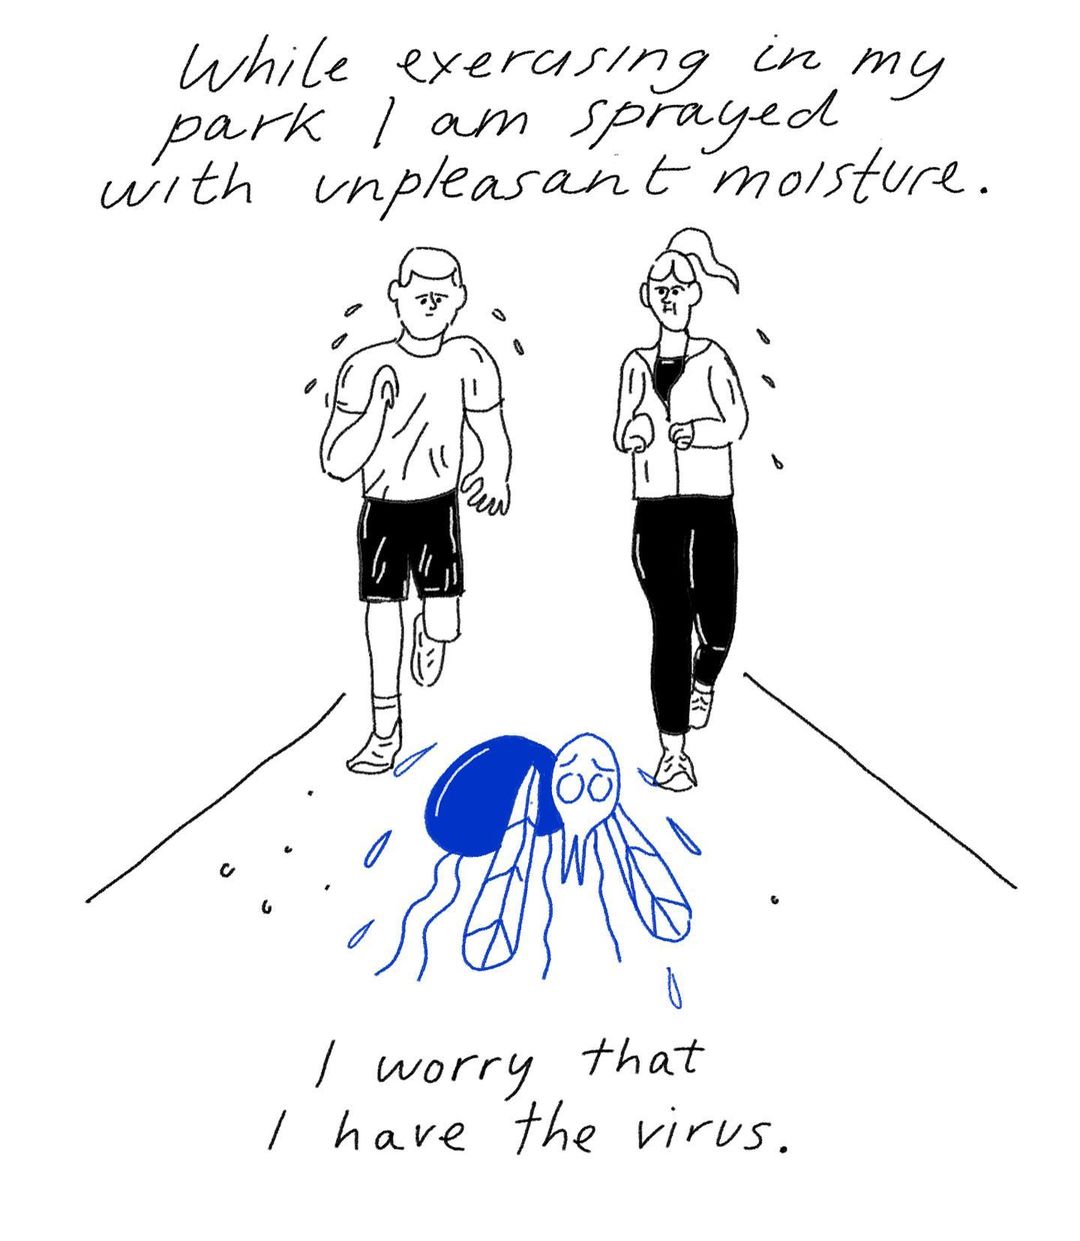 While exercising in my
park I am sprayed
with unpleasant moisture.
I worry that
I have the virus.